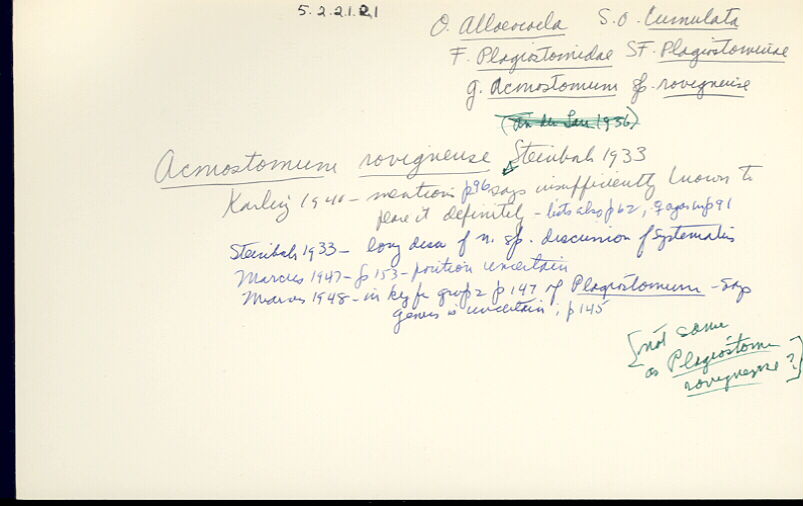 5.2.2.1.2.1
O. Alloeocoela S.O. Cumulata
F. Plagiostomidae SF. Plagiostominae
g. Acmostomum sp. rovignense
(an der Lan 1936)
Acmostomum rovignense Steinbah 1933
Karling 1940 - mentions p96 says insufficiently known to
place it definitely - lists also p62, & again p91
Steinbah 1933 - long desc of n. sp. discussion of systematics
Marcus 1947 - p153 - position uncertain
Marcus 1948 - in key for group 2 p147 of Plagiostomum - says
genus is uncertain, p145
[not same
as Plagiostomum
rovignense?]